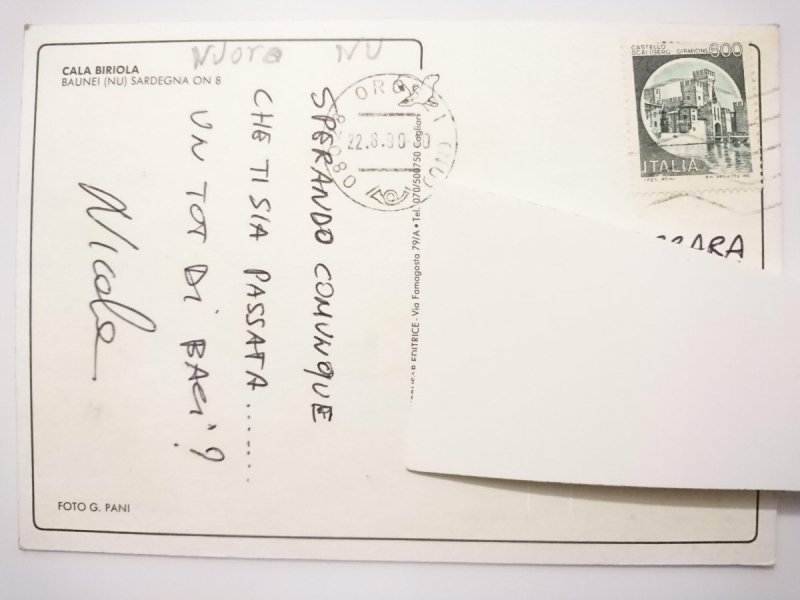 Nuora NU
CALA BIRIOLA
BAUNEI (NU) SARDEGNA ON 8
SPERANDO COMUNQUE
CHE TI SIA PASSATA..........
UN TOT DI BACI'?
Nicola
FOTO G. PANI
22.8.90
08080
EDITRICE - Via Famagosta 79/A • Tel. 070/500750 Cagliari
CASTELLO
SCALIGERO SIRMIONE
600
ITALIA